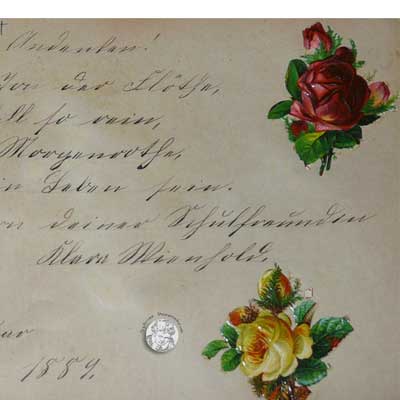 Andenken!
von der Flöthe,
ll so rein,
Morgenroothe,
in Leben sein.
on deiner Schulfreundin
Klara Wienhold.
ar
1889.